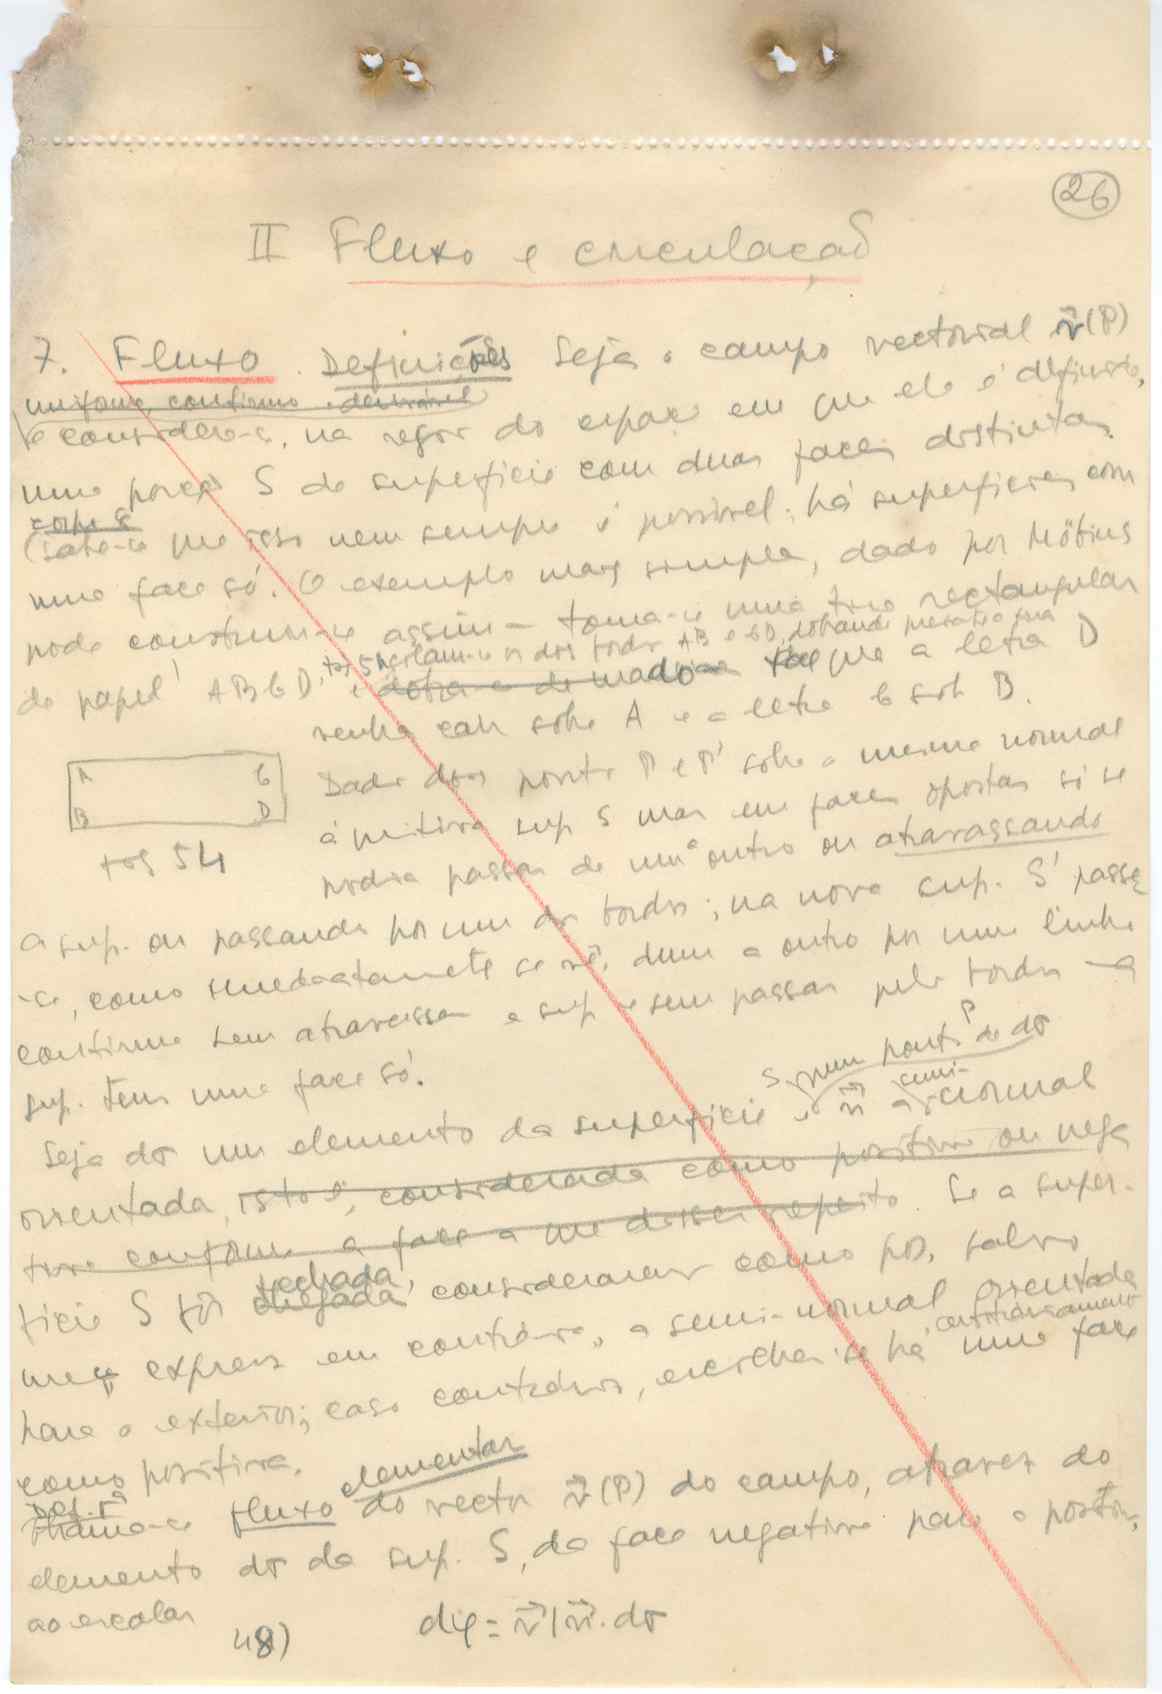 26
II Fluxo e circulação
7. Fluxo. Definições Seja o campo vectorial v⃗(P)
uniforme, continuo e derivável
e considere-se, na região do espaço em que ele é definido,
uma porção S de superficie com duas faces distintas
(sabe-se que isso nem sempre é possivel; há superficies com
uma face só. O exemplo mais simples, dado por Möbius
pode construir-se assim — toma-se uma tira rectangular
de papel ABCD, fig 54, e colam-se os dois bordos AB e CD, dobando
e dobra-se de modo tal que a letra D
venha cair sobre A e a letra C sob B.
A C
B D
fig 54
Dados dois pontos P e P' sobre a mesma normal
á primitiva sup S mas em faces opostas só se
podia passar de um a outro ou atravassando
a sup. ou passando por um dos bordos; na nova sup. S' passa-
-se, como imediatamente se vê, dum a outro por uma linha
continua sem atravessar a sup e sem passar pelos bordos — a
sup. tem uma face só.
Seja dσ um elemento da superficie S, num ponto P de dσ e n⃗ a semi-normal
orientada, isto é, considerada como positiva ou nega
tiva conforme a face a que disser respeito. Se a super-
ficie S fôr fechada, consideramos como pos., salvo
menção expressa em contrário, a semi-normal orientada
para o exterior; caso contrário, escolher-se há arbitrariamente uma face
como positiva.
Def. 1ª
Chama-se fluxo elementar do vector v⃗(P) do campo, atraves do
elemento dσ da sup. S, da face negativa para a positiva,
ao escalar
48) dφ = v⃗|n⃗.dσ